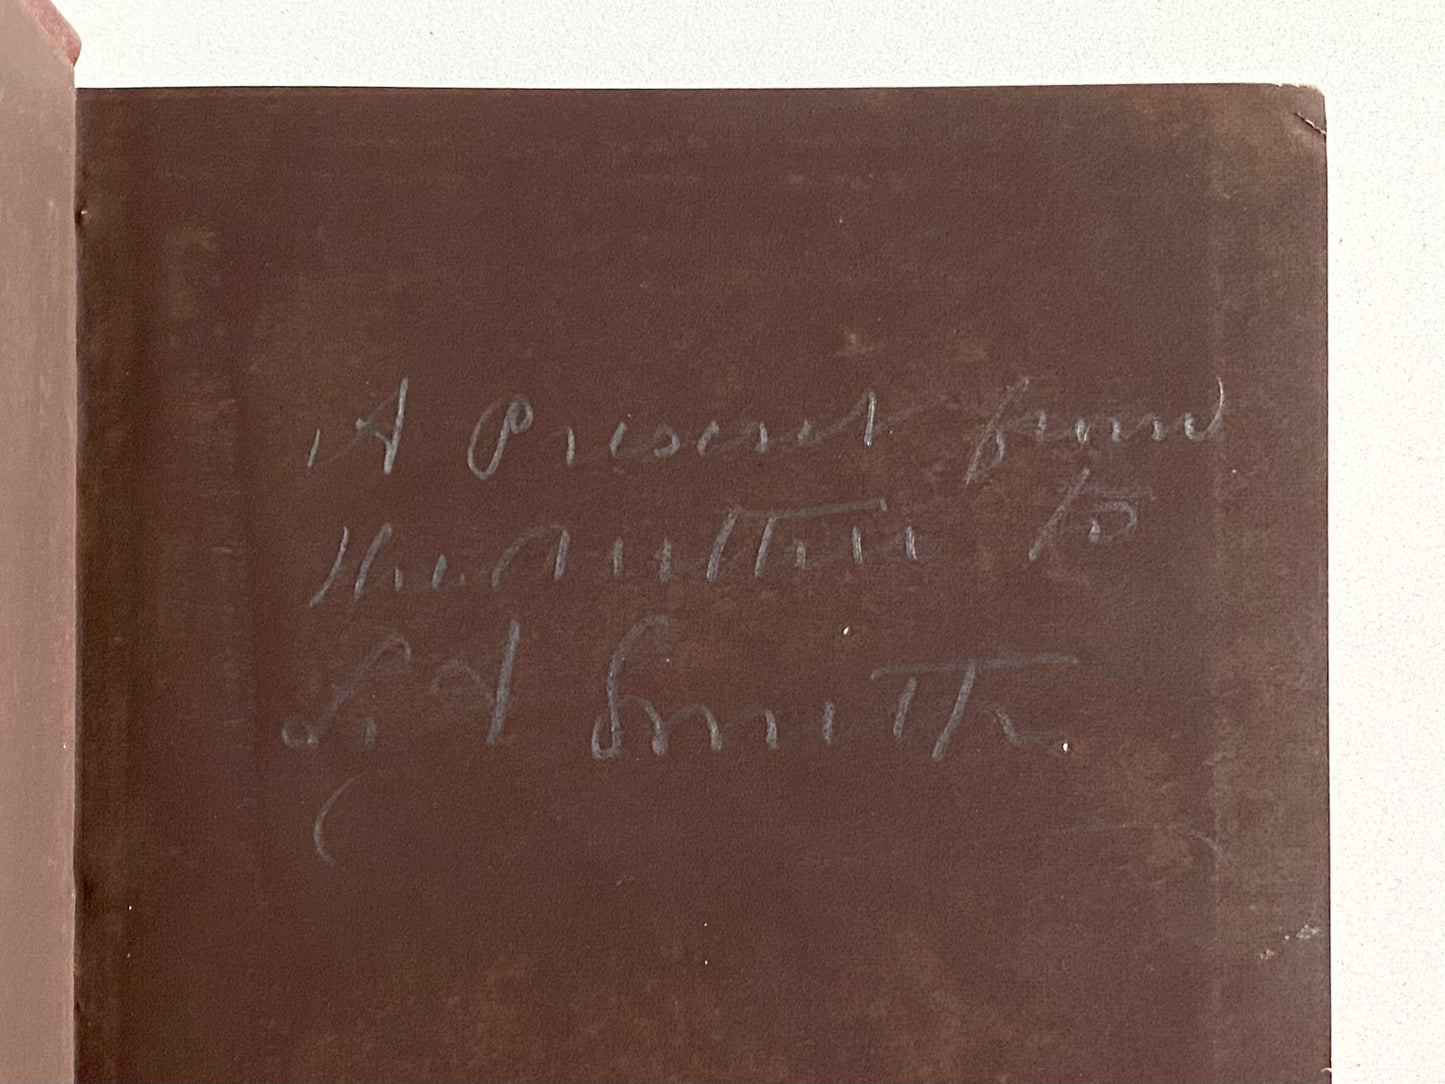 A Present from
the Author to
L A Smith